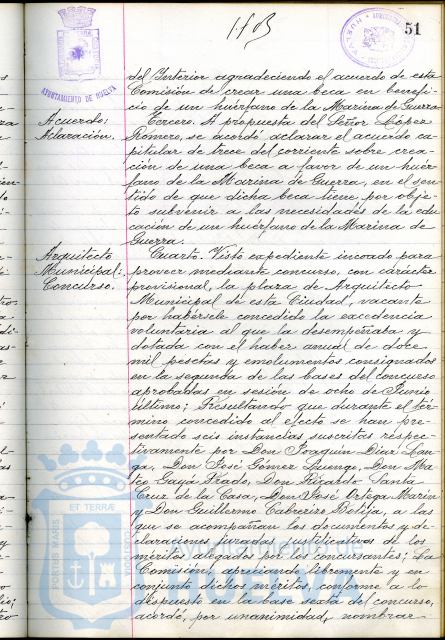 51
AYUNTAMIENTO DE HUELVA
del Interior agradeciendo el acuerdo de esta
Comisión de crear una beca en benefi-
cio de un huérfano de la Marina de Guerra
Acuerdo:
Aclaración.
Tercero. A propuesta del Señor López
Romero, se acordó aclarar el acuerdo ca-
pitular de trece del corriente sobre crea-
ción de una beca a favor de un huér-
fano de la Marina de Guerra, en el sen-
tido de que dicha beca tiene por obje-
to subvenir a las necesidades de la edu-
cación de un huérfano de la Marina de
Guerra.
Arquitecto
Municipal:
Concurso.
Cuarto. Visto expediente incoado para
proveer mediante concurso, con carácter
provisional, la plaza de Arquitecto
Municipal de esta Ciudad, vacante
por habérsele concedido la excedencia
voluntaria al que la desempeñaba y
dotada con el haber anual de doce
mil pesetas y emolumentos consignados
en la segunda de las bases del concurso
aprobadas en sesión de ocho de Junio
último; Resultando que durante el tér-
mino concedido al efecto se han pre-
sentado seis instancias suscritas respec-
tivamente por Don Joaquin Diaz Lan-
ga, Don José Gomez Luengo, Don Ma-
teo Gayá Prado, Don Ricardo Santa
Cruz de la Casa, Don José Ortega Marin
y Don Guillermo Cabrerizo Botija, a las
que se acompañan los documentos y de-
claraciones juradas justificativos de los
méritos alegados por los concursantes; La
Comisión, apreciando libremente y en
conjunto dichos méritos, conforme a lo
dispuesto en la base sexta del concurso,
acordó, por unanimidad, nombrar
PORTUS MARIS ET TERRAE